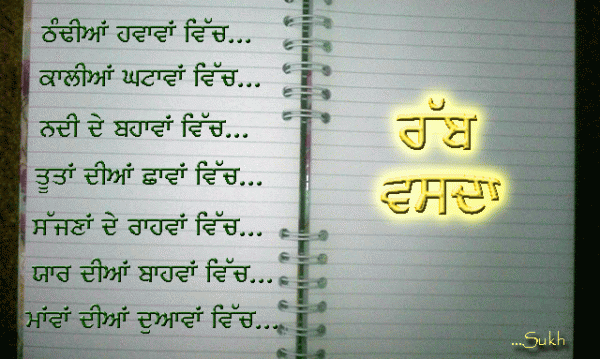 ਠੰਢੀਆਂ ਹਵਾਵਾਂ ਵਿੱਚ...
ਕਾਲੀਆਂ ਘਟਾਵਾਂ ਵਿੱਚ...
ਨਦੀ ਦੇ ਬਹਾਵਾਂ ਵਿੱਚ...
ਤੂਤਾਂ ਦੀਆਂ ਛਾਵਾਂ ਵਿੱਚ...
ਸੱਜਣਾਂ ਦੇ ਰਾਹਵਾਂ ਵਿੱਚ...
ਯਾਰ ਦੀਆਂ ਬਾਹਵਾਂ ਵਿੱਚ...
ਮਾਂਵਾਂ ਦੀਆਂ ਦੁਆਵਾਂ ਵਿੱਚ...
ਰੱਬ
ਵਸਦਾ
...Sukh